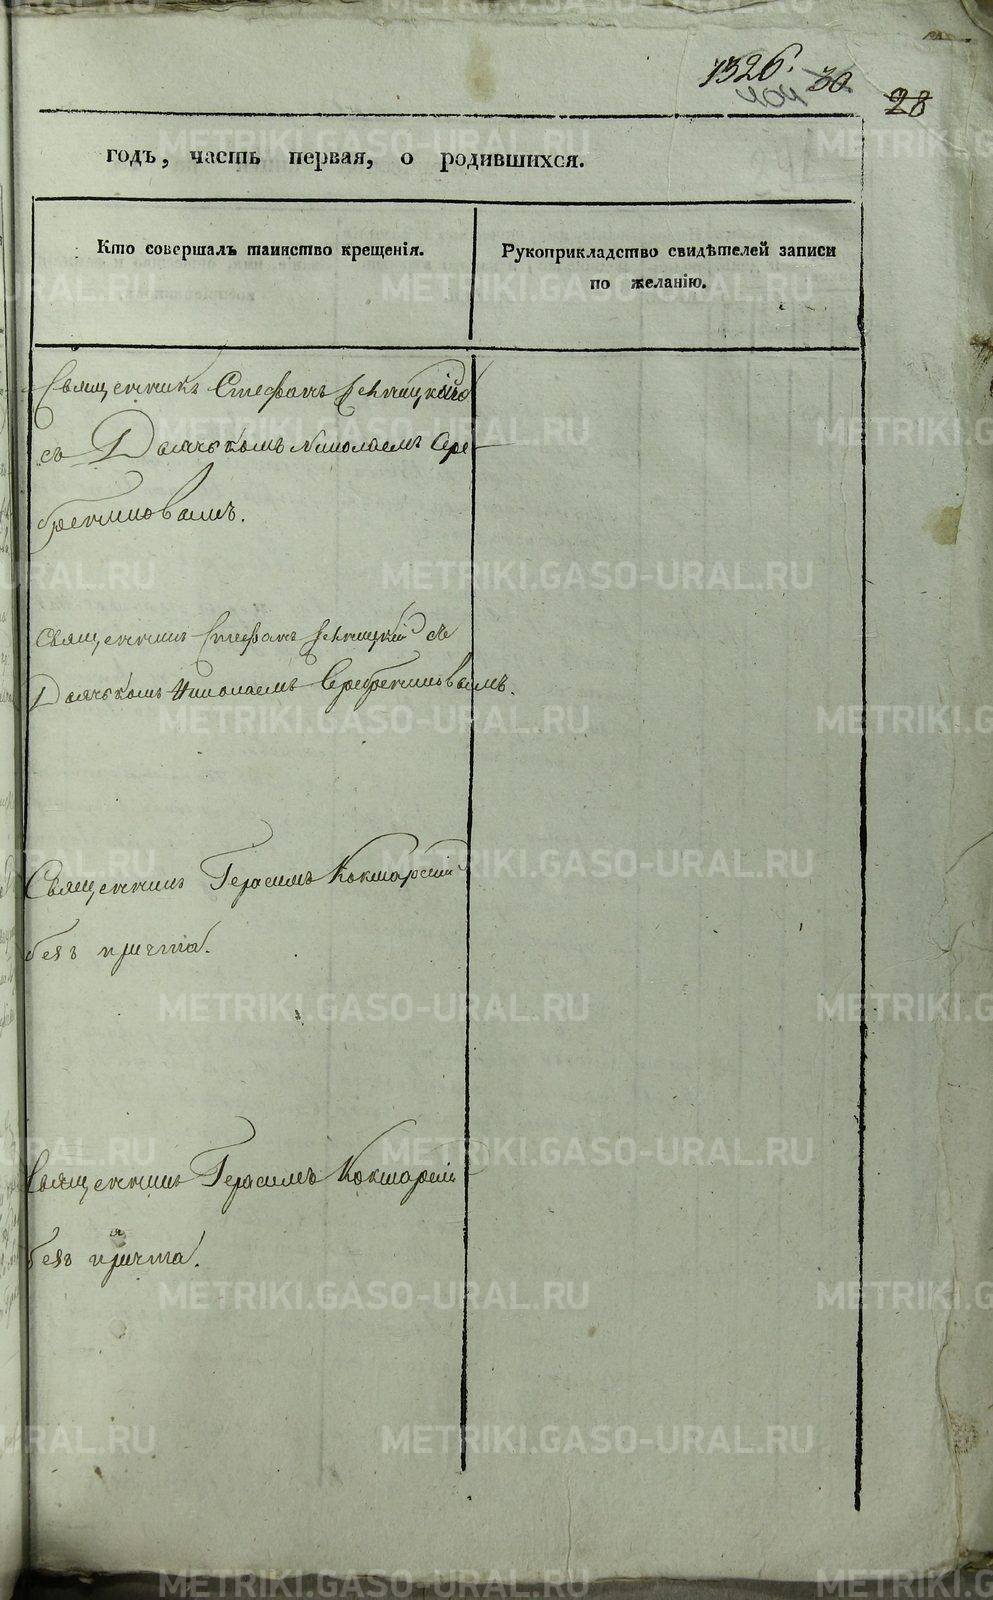 1326.
30
28
годъ, часть первая, о родившихся.
Кто совершалъ таинство крещенія.
Рукоприкладство свидѣтелей записи
по желанію.
Священникъ Стефанъ
съ Дьячькомъ Николаемъ Сере
бренниковымъ.
Священникъ Стефанъ съ
Дьячькомъ Николаемъ Серебренниковымъ.
Священникъ Герасимъ Кокшарскій
безъ причта.
Священникъ Герасимъ Кокшарскій
безъ причта.
METRIKI.GASO-URAL.RU